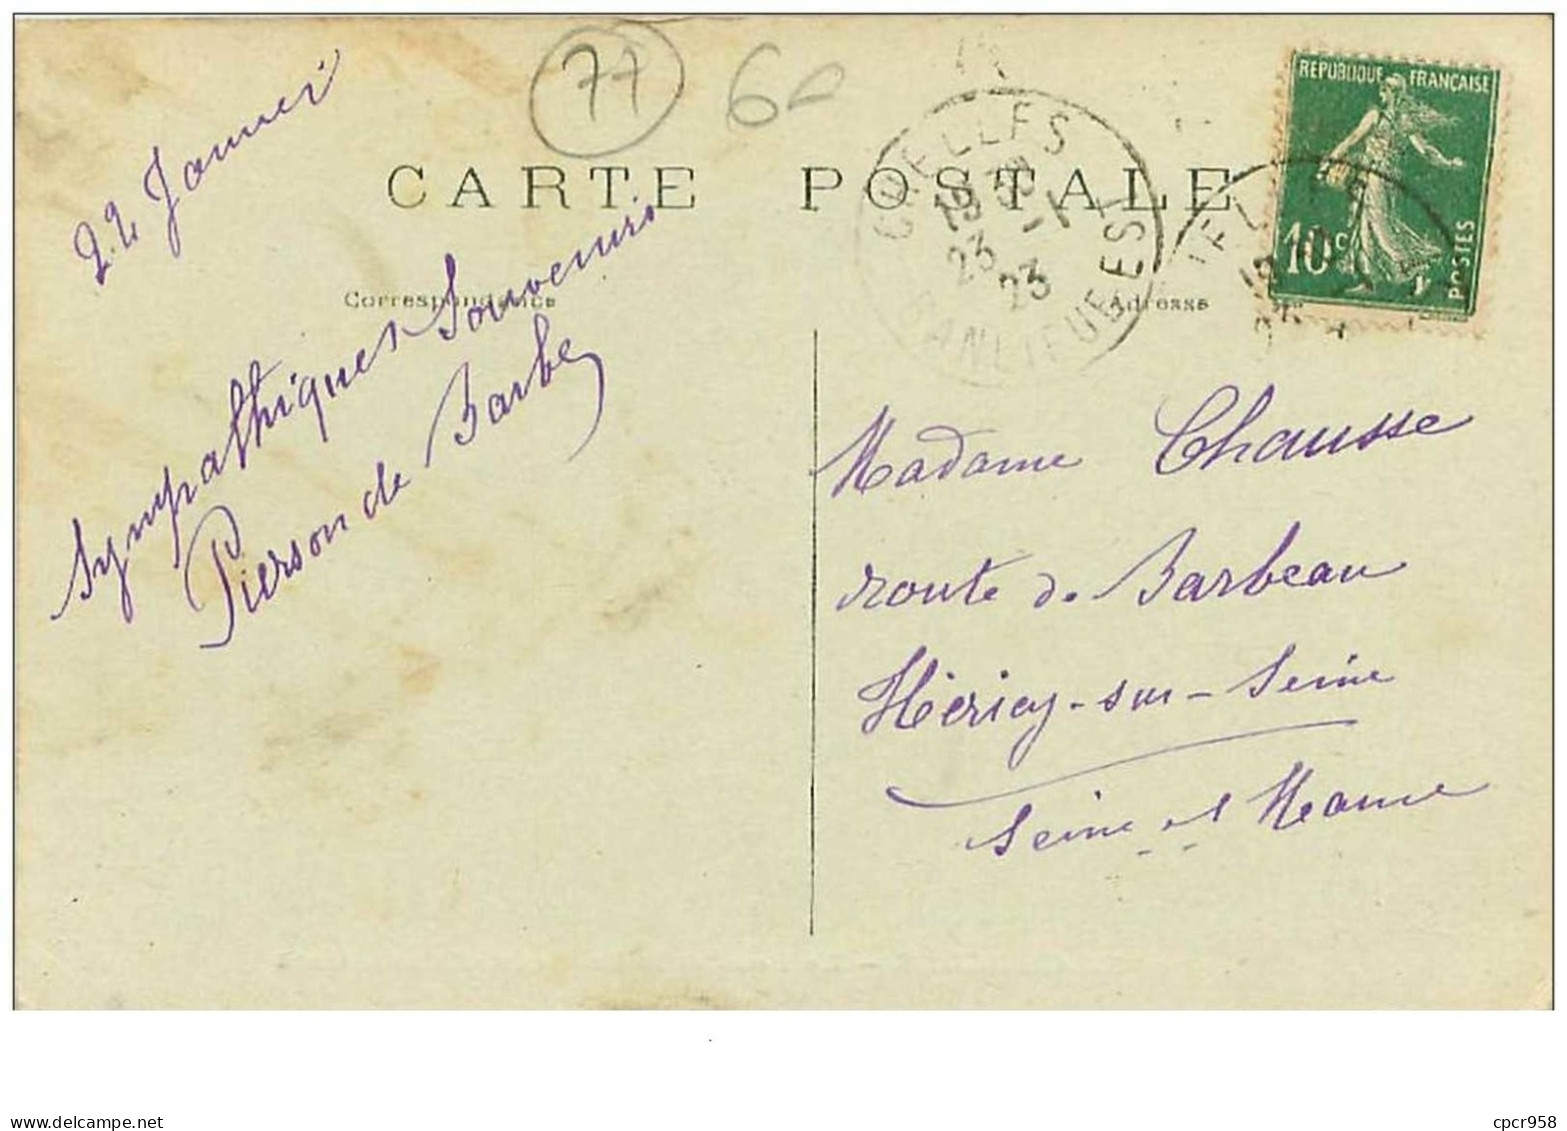 77
60
CARTE POSTALE
Correspondance
Adresse
RÉPUBLIQUE FRANÇAISE
10c
POSTES
CHELLES
23 -1
23
BANLIEUE EST
22 Janvier
Sympathiques Souvenirs
Pierson de Barbe
Madame Chausse
route de Barbeau
Héricy-sur-Seine
Seine et Marne
www.delcampe.net
cpcr958